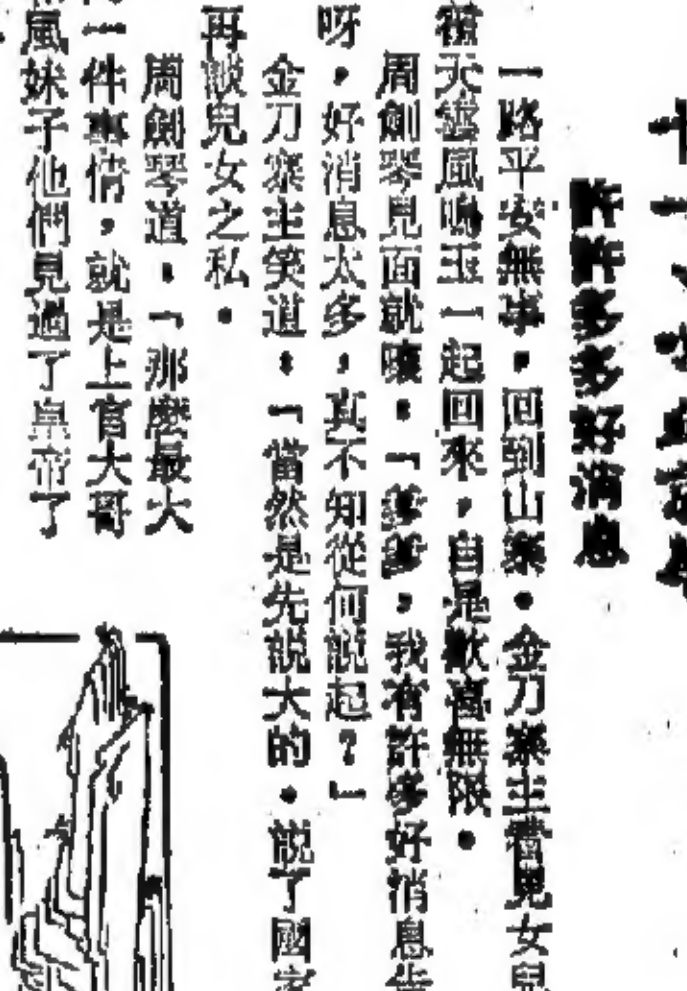 許許多多好消息
一路平安無事,回到山寨。金刀寨主看見女兒
天雲鳳鳴玉一起回來,自是歡喜無限。
周劍琴見面就嚷:「爹爹,我有許多好消息告
呀,好消息太多,真不知從何說起?」
金刀寨主笑道:「當然是先說大的。說了國家
再談兒女之私。
周劍琴道:「那麼最大
一件事情,就是上官大哥
風妹子他們見過了皇帝了